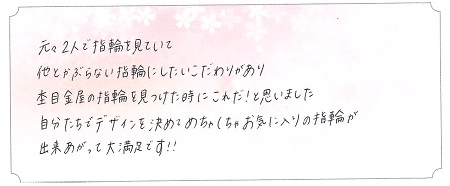 元々2人で指輪を見ていて
他とかぶらない指輪にしたいこだわりがあり
杢目金屋の指輪を見つけた時にこれだ!と思いました
自分たちでデザインを決めてめちゃくちゃお気に入りの指輪が
出来あがって大満足です!!